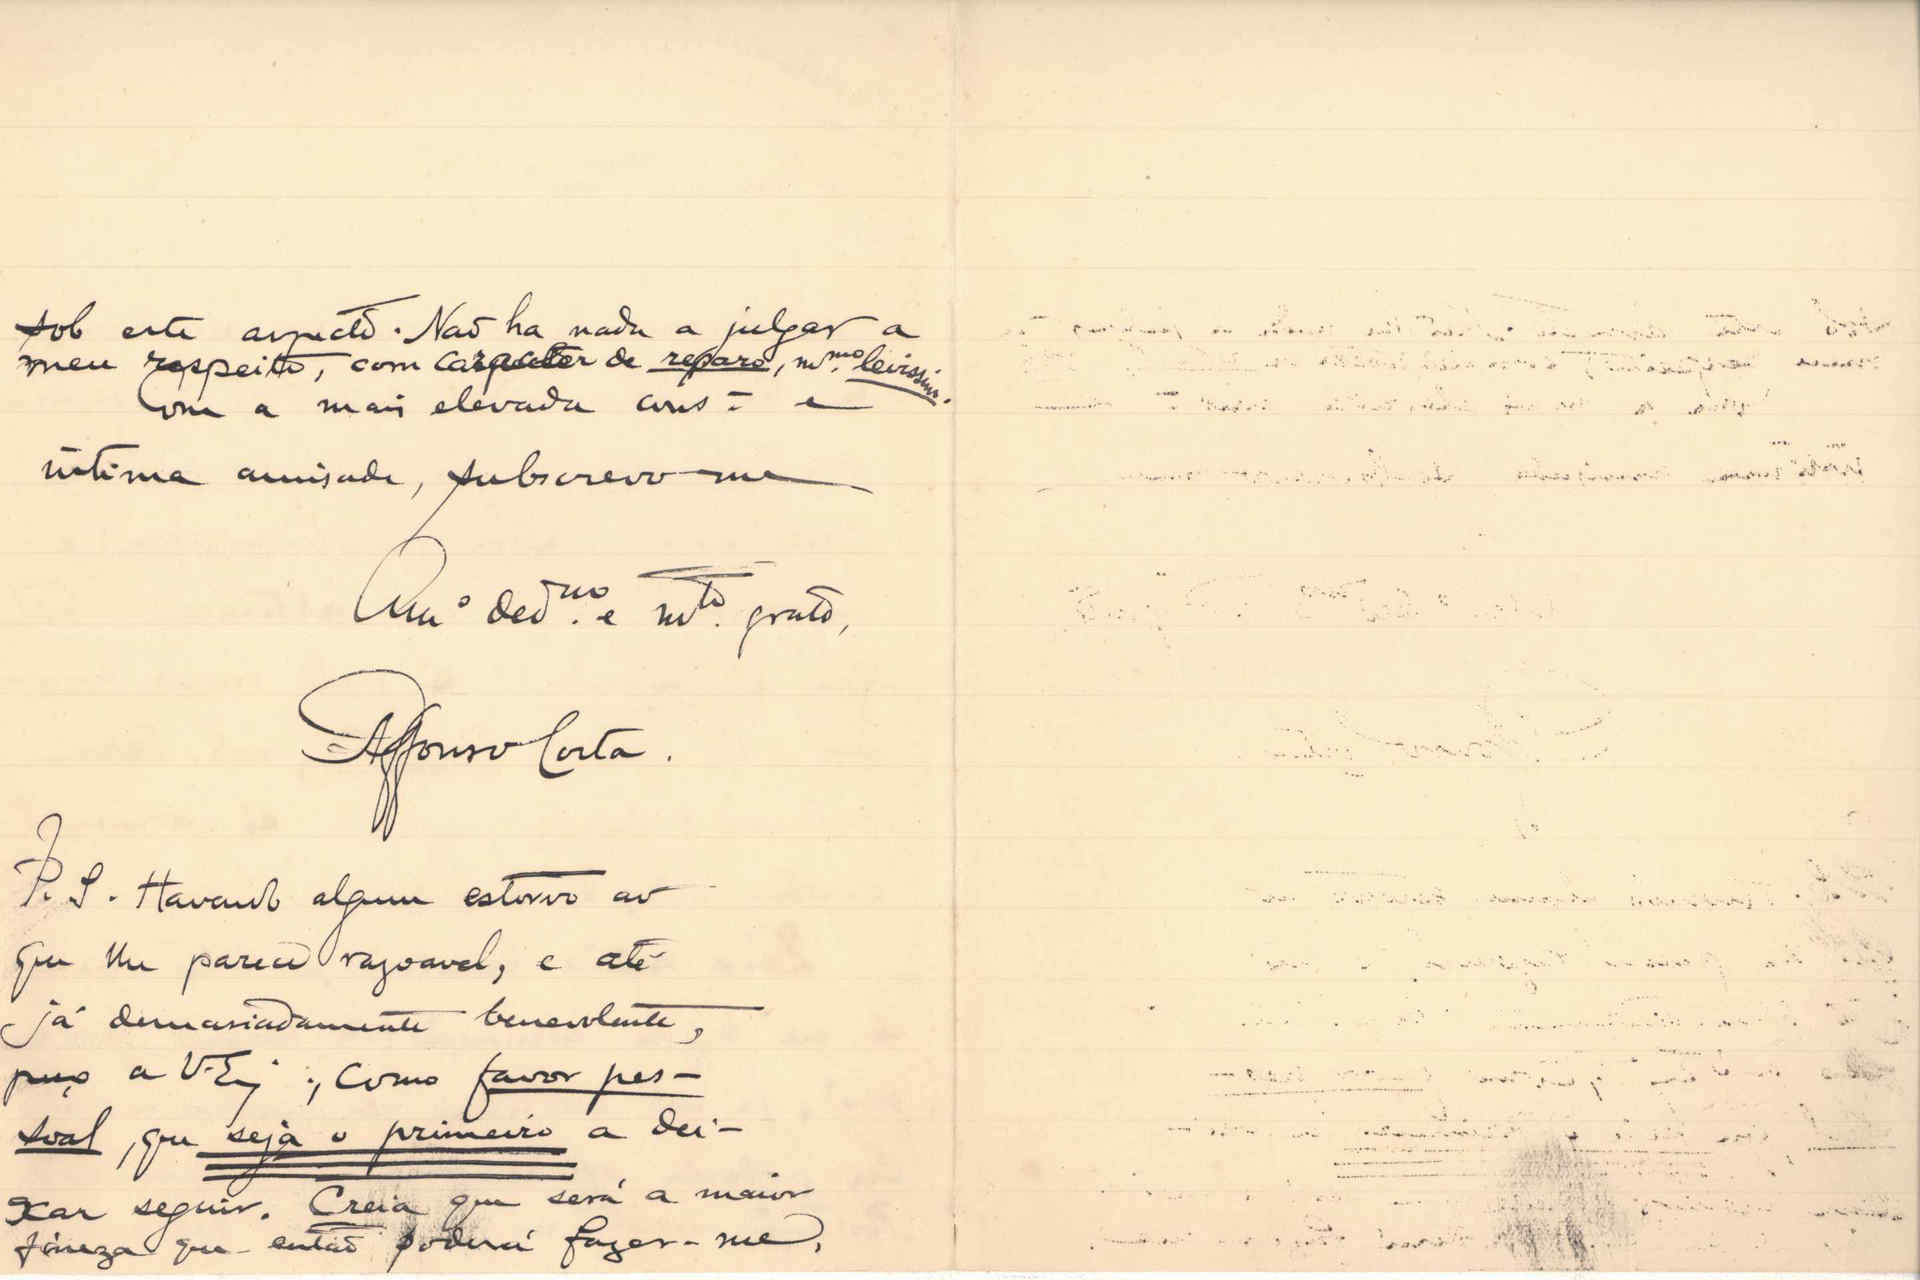 sob este aspecto. Não ha nada a julgar a
meu respeito, com caracter de reparo, m.mo levissimo.
Com a mais elevada cons= e
intima amisade, subscrevo-me
Am.o ded.mo e mt.o grato,
Affonso Costa.
P. S. Havendo algum estorvo ao
que lhe parece razoavel, e até
já demasiadamente benevolente,
peço a V. Ex.; como favor pes-
soal, que seja o primeiro a dei-
xar seguir. Creia que será a maior
fineza que então poderá fazer-me.